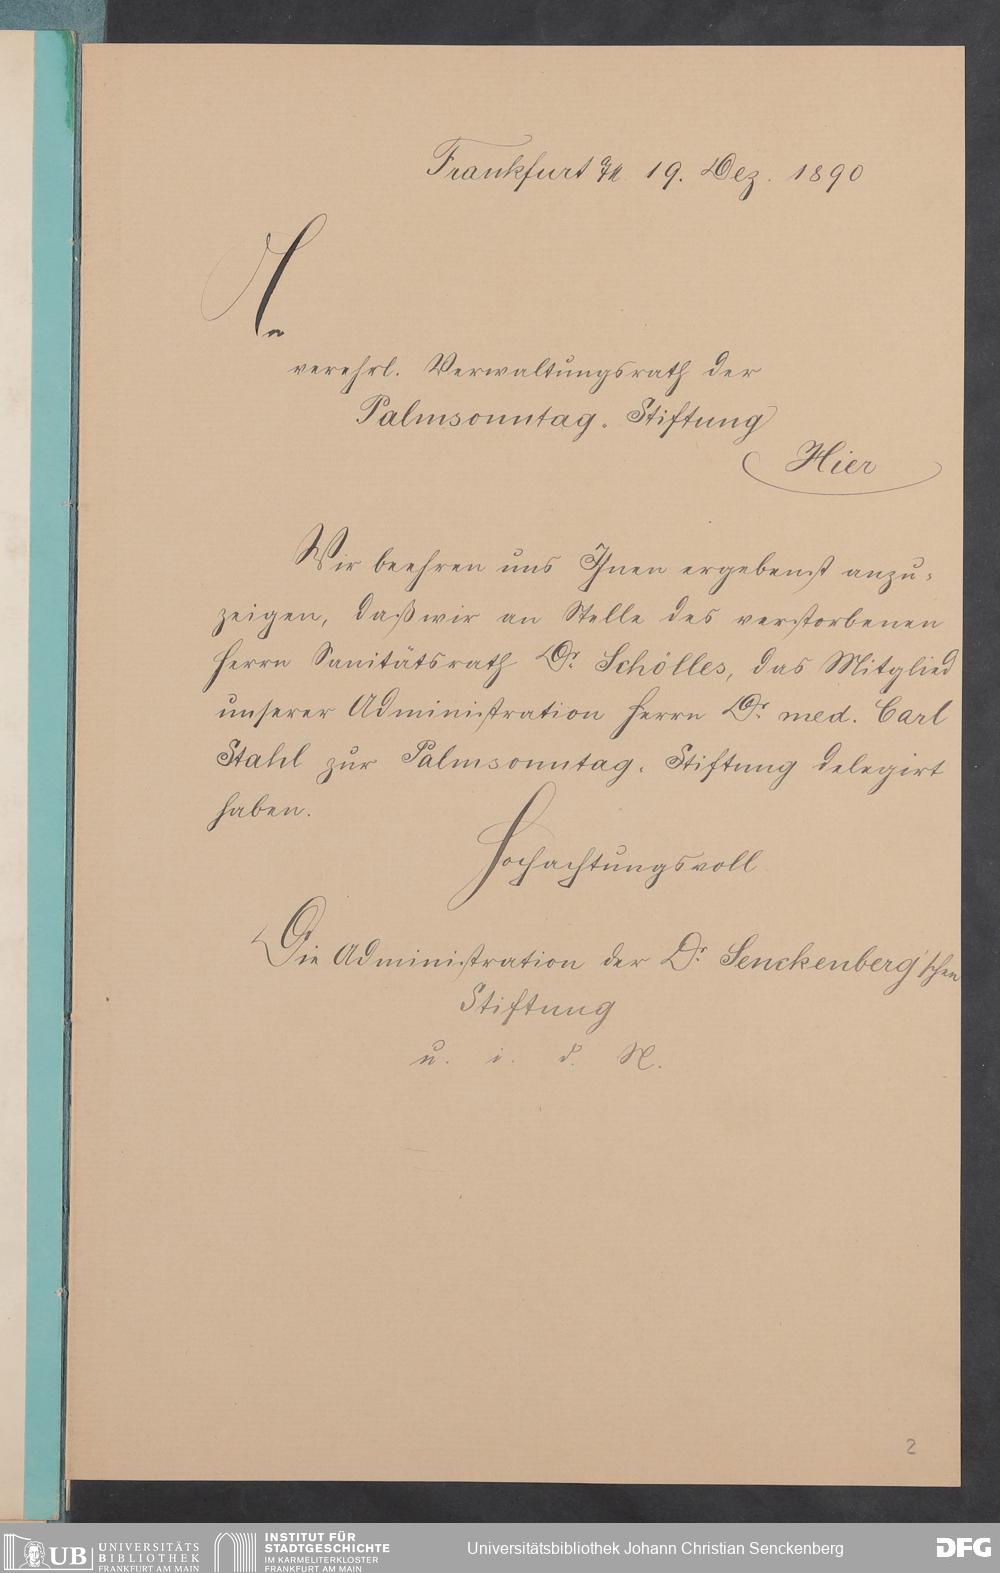 Frankfurt a/M. 19. Dez. 1890
An
verehrl. Verwaltungsrath der
Palmsonntag-Stiftung
Hier
Wir beehren uns Ihnen ergebenst anzu-
zeigen, daß wir an Stelle des verstorbenen
Herrn Sanitätsrath Dr. Schölles, das Mitglied
unserer Administration Herrn Dr. med. Carl
Stahl zur Palmsonntag-Stiftung delegirt
haben.
Hochachtungsvoll
Die Administration der Dr. Senckenberg'schen
Stiftung
u. i. d. N.
2
UB UNIVERSITÄTS
BIBLIOTHEK
FRANKFURT AM MAIN
INSTITUT FÜR
STADTGESCHICHTE
IM KARMELITERKLOSTER
FRANKFURT AM MAIN
Universitätsbibliothek Johann Christian Senckenberg
DFG